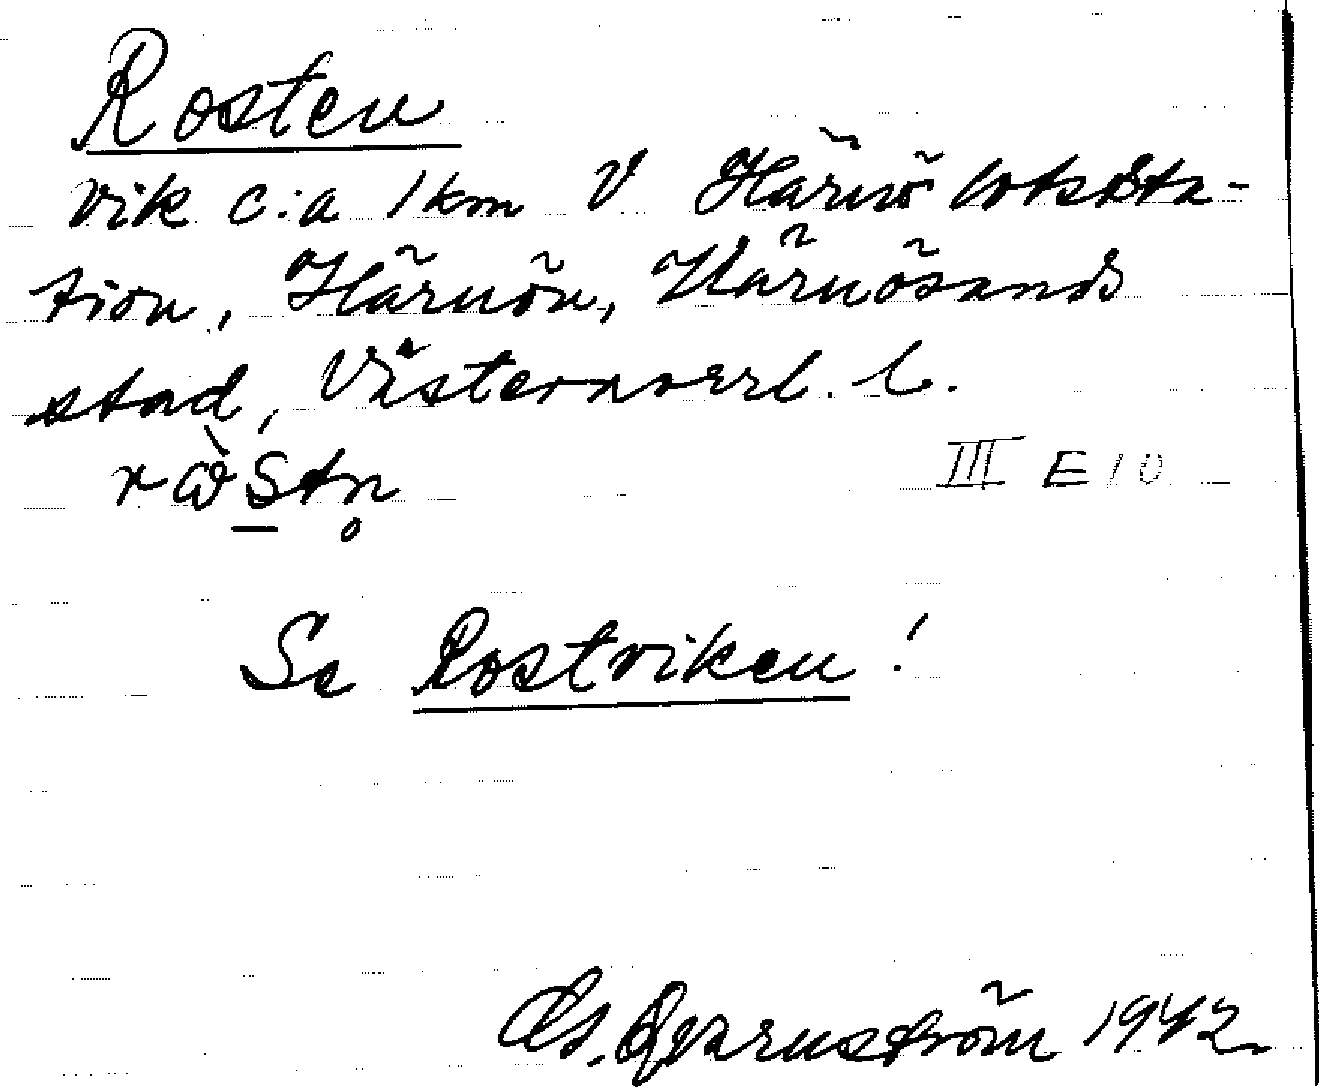 Rosten
vik c:a 1 km V Härnö lotssta-
tion, Härnön, Härnösands
stad, Västernorrl. l.
III E 10
Se Rostviken!
Bjernström 1942